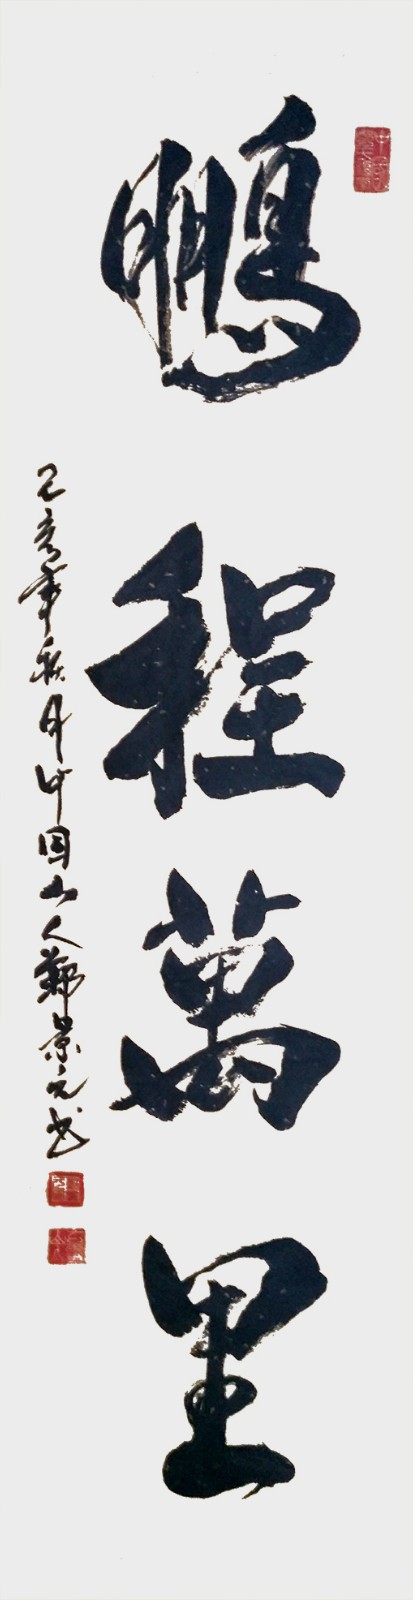 鵬程萬里
己亥年秋月中国山人鄭景元书